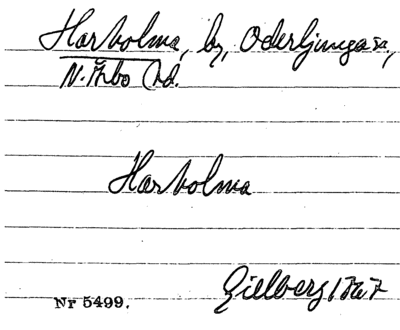 Harholma, by, Oderljunga sn,
N. Åsbo hd.
Harholma
Gillberg 1767
Nr 5499.